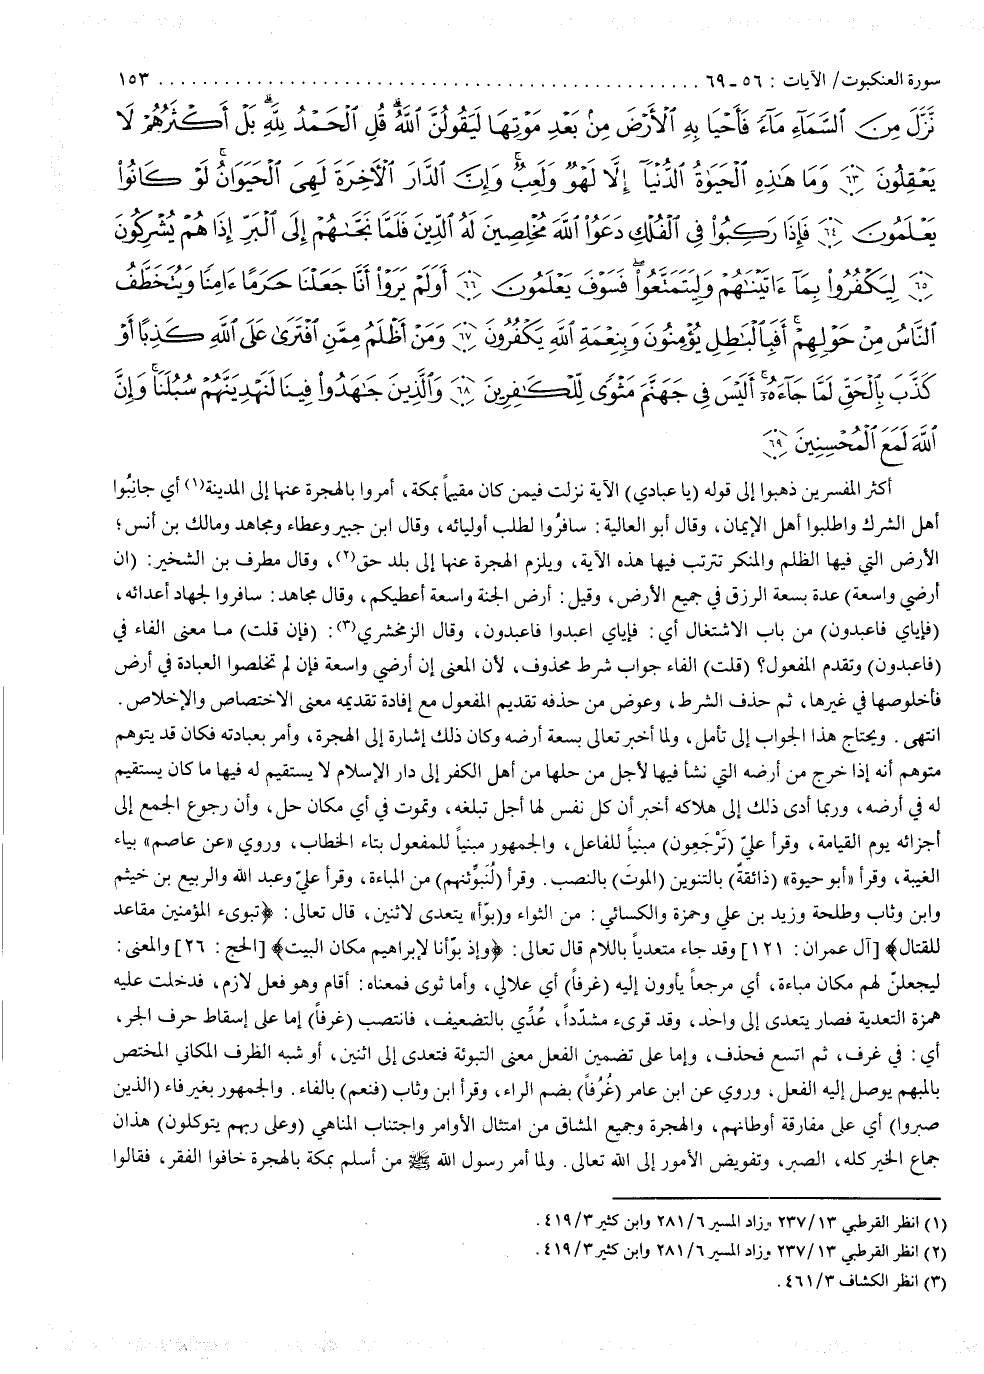 سورة العنكبوت/ الآيات : ٥٦ ـ ٦٩ ........................................................ ١٥٣
نَّزَّلَ مِنَ ٱلسَّمَآءِ مَآءً فَأَحْيَا بِهِ ٱلْأَرْضَ مِنۢ بَعْدِ مَوْتِهَا لَيَقُولُنَّ ٱللَّهُ ۚ قُلِ ٱلْحَمْدُ لِلَّهِ ۚ بَلْ أَكْثَرُهُمْ لَا
يَعْقِلُونَ ﴿٦٣﴾ وَمَا هَٰذِهِ ٱلْحَيَوٰةُ ٱلدُّنْيَآ إِلَّا لَهْوٌ وَلَعِبٌ ۚ وَإِنَّ ٱلدَّارَ ٱلْآخِرَةَ لَهِيَ ٱلْحَيَوَانُ ۚ لَوْ كَانُوا۟
يَعْلَمُونَ ﴿٦٤﴾ فَإِذَا رَكِبُوا۟ فِي ٱلْفُلْكِ دَعَوُا۟ ٱللَّهَ مُخْلِصِينَ لَهُ ٱلدِّينَ فَلَمَّا نَجَّىٰهُمْ إِلَى ٱلْبَرِّ إِذَا هُمْ يُشْرِكُونَ
﴿٦٥﴾ لِيَكْفُرُوا۟ بِمَآ ءَاتَيْنَٰهُمْ وَلِيَتَمَتَّعُوا۟ ۖ فَسَوْفَ يَعْلَمُونَ ﴿٦٦﴾ أَوَلَمْ يَرَوْا۟ أَنَّا جَعَلْنَا حَرَمًا ءَامِنًا وَيُتَخَطَّفُ
ٱلنَّاسُ مِنْ حَوْلِهِمْ ۚ أَفَبِٱلْبَٰطِلِ يُؤْمِنُونَ وَبِنِعْمَةِ ٱللَّهِ يَكْفُرُونَ ﴿٦٧﴾ وَمَنْ أَظْلَمُ مِمَّنِ ٱفْتَرَىٰ عَلَى ٱللَّهِ كَذِبًا أَوْ
كَذَّبَ بِٱلْحَقِّ لَمَّا جَآءَهُۥٓ ۚ أَلَيْسَ فِي جَهَنَّمَ مَثْوًى لِّلْكَٰفِرِينَ ﴿٦٨﴾ وَٱلَّذِينَ جَٰهَدُوا۟ فِينَا لَنَهْدِيَنَّهُمْ سُبُلَنَا ۚ وَإِنَّ
ٱللَّهَ لَمَعَ ٱلْمُحْسِنِينَ ﴿٦٩﴾
أكثر المفسرين ذهبوا إلى قوله (يا عبادي) الآية نزلت فيمن كان مقيماً بمكة، أمروا بالهجرة عنها إلى المدينة(١) أي جانِبُوا
أهل الشرك واطلبوا أهل الإيمان، وقال أبو العالية: سافرُوا لطلب أوليائه، وقال ابن جبير وعطاء ومجاهد ومالك بن أنس؛
الأرض التي فيها الظلم والمنكر تترتب فيها هذه الآية، ويلزم الهجرة عنها إلى بلد حق(٢)، وقال مطرف بن الشخير: (ان
أرضي واسعة) عدة بسعة الرزق في جميع الأرض، وقيل: أرض الجنة واسعة أعطيكم، وقال مجاهد: سافروا لجهاد أعدائه،
(فإياي فاعبدون) من باب الاشتغال أي: فإياي اعبدوا فاعبدون، وقال الزمخشري(٣): (فإن قلت) ما معنى الفاء في
(فاعبدون) وتقدم المفعول؟ (قلت) الفاء جواب شرط محذوف، لأن المعنى إن أرضي واسعة فإن لم تخلصوا العبادة في أرض
فأخلوصها في غيرها، ثم حذف الشرط، وعوض من حذفه تقديم المفعول مع إفادة تقديمه معنى الاختصاص والإخلاص.
انتهى. ويحتاج هذا الجواب إلى تأمل، ولما أخبر تعالى بسعة أرضه وكان ذلك إشارة إلى الهجرة، وأمر بعبادته فكان قد يتوهم
متوهم أنه إذا خرج من أرضه التي نشأ فيها لأجل من حلها من أهل الكفر إلى دار الإسلام لا يستقيم له فيها ما كان يستقيم
له في أرضه، وربما أدى ذلك إلى هلاكه أخبر أن كل نفس لها أجل تبلغه، وتموت في أي مكان حل، وأن رجوع الجمع إلى
أجزائه يوم القيامة، وقرأ عليّ (تَرْجَعِون) مبنياً للفاعل، والجمهور مبنياً للمفعول بتاء الخطاب، وروي «عن عاصم» بياء
الغيبة، وقرأ «أبو حيوة» (ذائقةٌ) بالتنوين (الموتَ) بالنصب. وقرأ (لَنبوِّئنهم) من المباءة، وقرأ عليّ وعبد الله والربيع بن خيثم
وابن وثاب وطلحة وزيد بن علي وحمزة والكسائي: من الثواء و(بوّأ» يتعدى لاثنين، قال تعالى: ﴿تبوىء المؤمنين مقاعد
للقتال﴾ [آل عمران: ١٢١] وقد جاء متعدياً باللام قال تعالى: ﴿وإذ بوّأنا لإبراهيم مكان البيت﴾ [الحج: ٢٦] والمعنى:
ليجعلنّ لهم مكان مباءة، أي مرجعاً يأوون إليه (غرفاً) أي علالي، وأما ثوى فمعناه: أقام وهو فعل لازم، فدخلت عليه
همزة التعدية فصار يتعدى إلى واحد، وقد قرىء مشدّداً، عُدِّي بالتضعيف، فانتصب (غرفاً) إما على إسقاط حرف الجر،
أي: في غرف، ثم اتسع فحذف، وإما على تضمين الفعل معنى التبوئة فتعدى إلى اثنين، أو شبه الظرف المكاني المختص
بالمبهم يوصل إليه الفعل، وروي عن ابن عامر (غُرُفاً) بضم الراء، وقرأ ابن وثاب (فنعم) بالفاء. والجمهور بغير فاء (الذين
صبروا) أي على مفارقة أوطانهم، والهجرة وجميع المشاق من امتثال الأوامر واجتناب المناهي (وعلى ربهم يتوكلون) هذان
جماع الخير كله، الصبر، وتفويض الأمور إلى الله تعالى. ولما أمر رسول الله ﷺ من أسلم بمكة بالهجرة خافوا الفقر، فقالوا
(١) انظر القرطبي ٢٣٧/١٣ وزاد المسير ٢٨١/٦ وابن كثير ٤١٩/٣.
(٢) انظر القرطبي ٢٣٧/١٣ وزاد المسير ٢٨١/٦ وابن كثير ٤١٩/٣.
(٣) انظر الكشاف ٤٦١/٣.